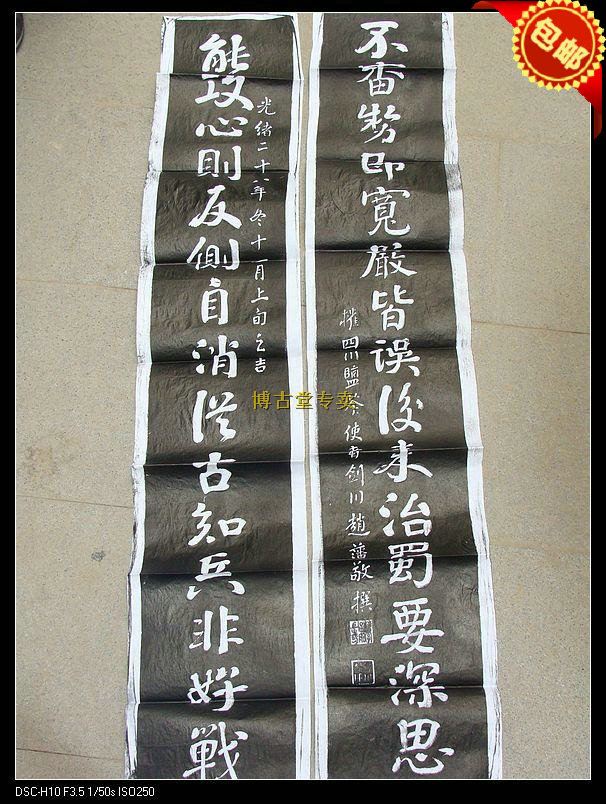 能攻心則反側自消從古知兵非好戰
光緒二十八年冬十一月上旬之吉
不審勢即寬嚴皆誤後來治蜀要深思
權四川鹽茶使者劍川趙藩敬撰
包邮
博古堂专卖
DSC-H10 F3.5 1/50s ISO250